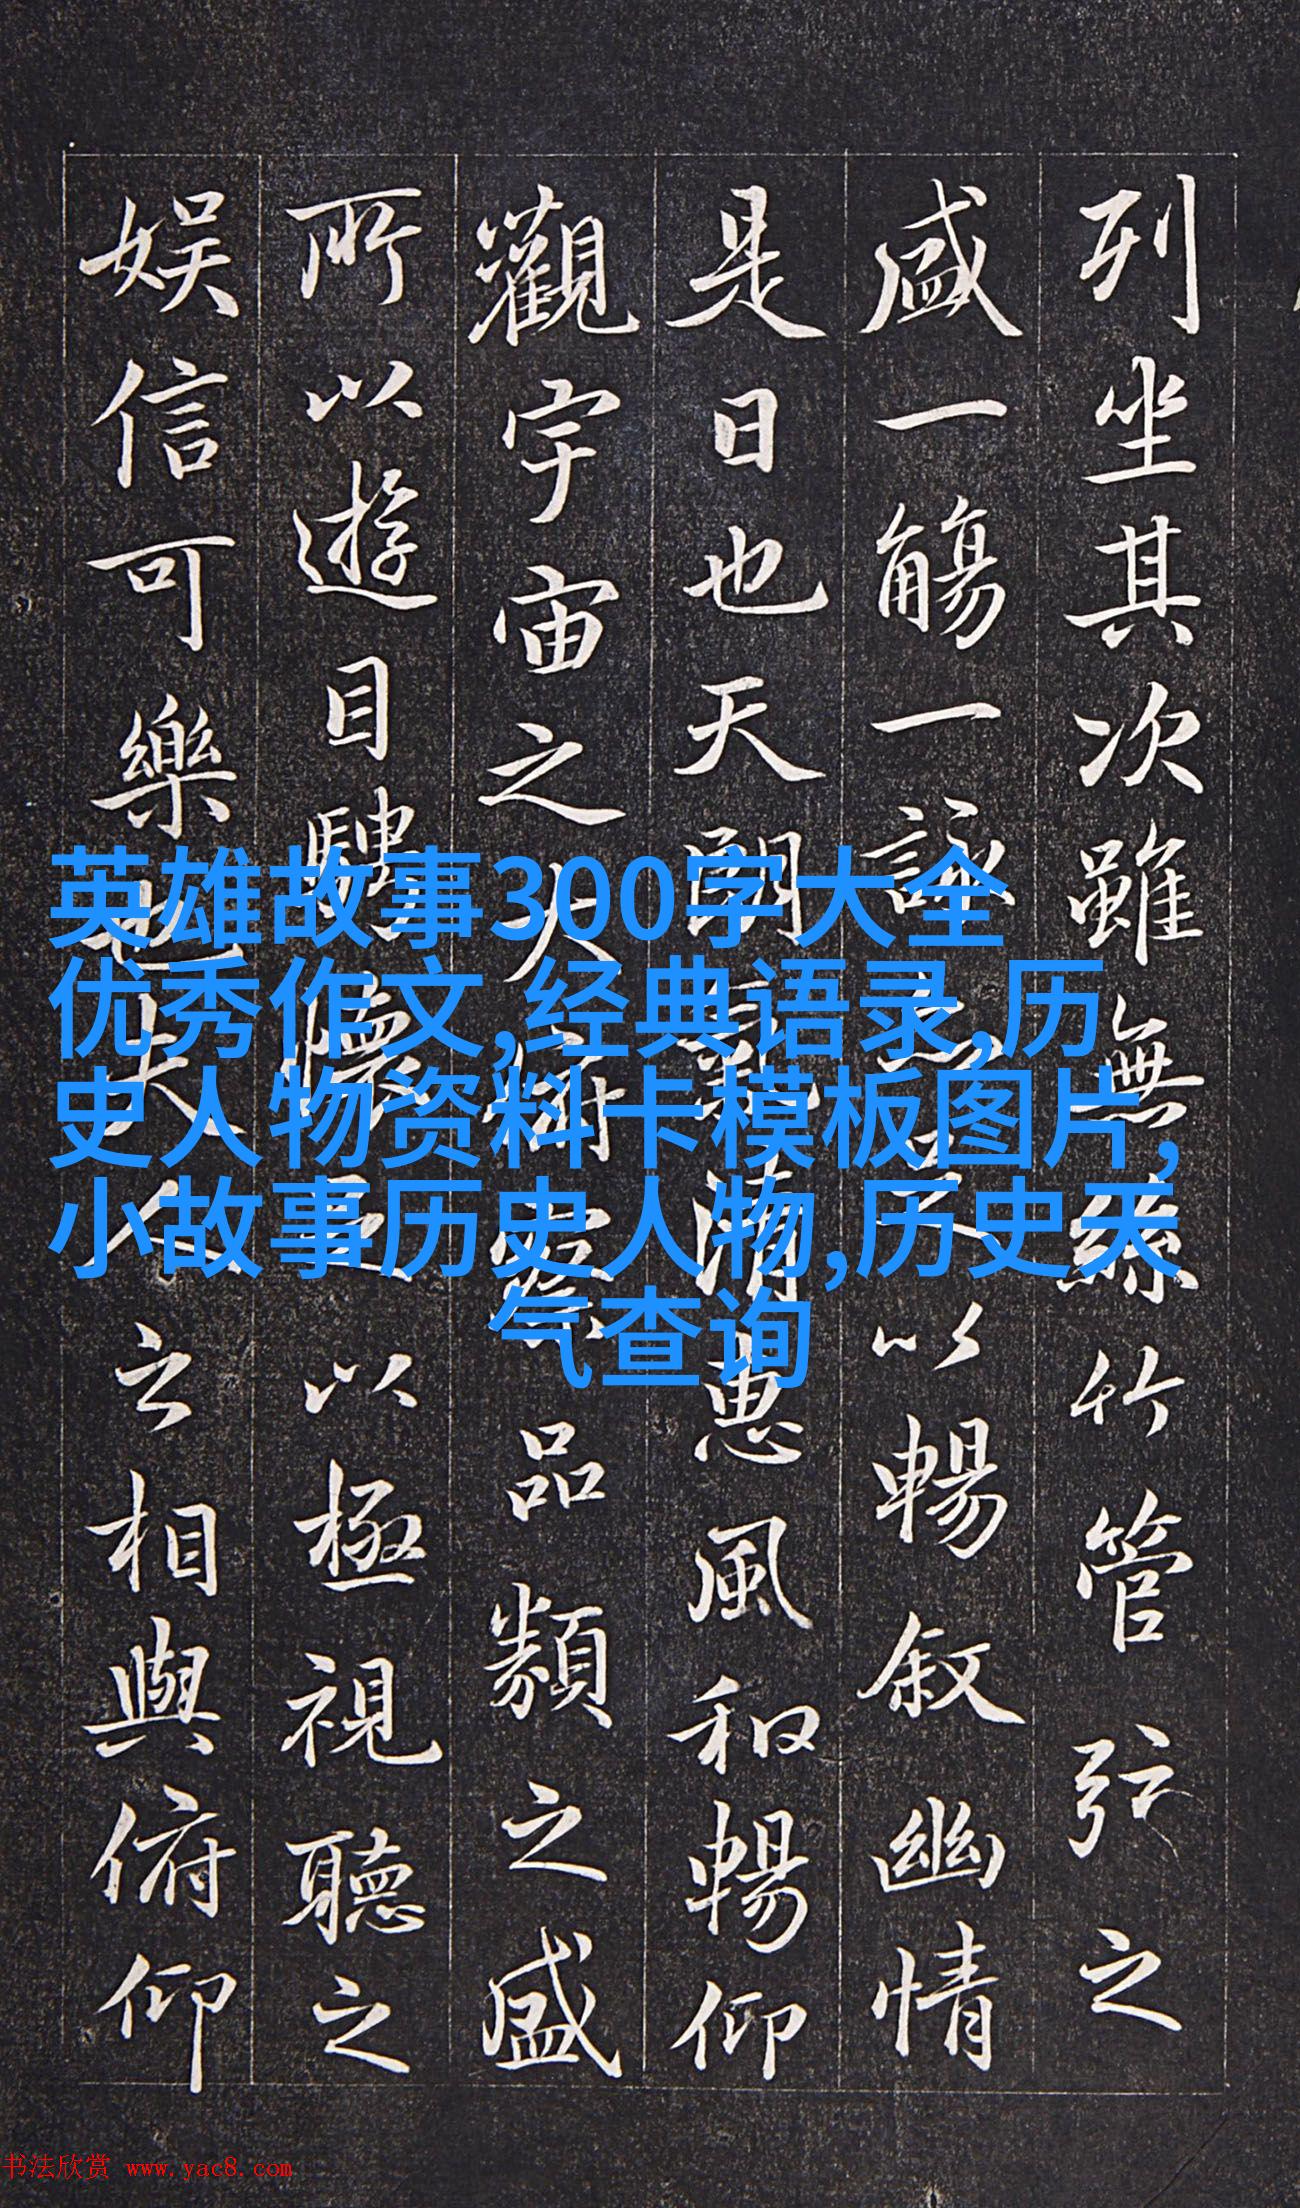 列坐其次雖無絲竹管弦之
盛一觴一詠亦足以暢敘幽情
是日也天朗氣清惠風和暢仰
觀宇宙之大俯察品類之盛
所以遊目騁懷足以極視聽之
娛信可樂也夫人之相與俯仰
英雄故事300字大全
优秀作文,经典语录,历
史人物资料卡模板图片,
小故事历史人物,历史天
气查询
书法欣赏 www.yac8.com